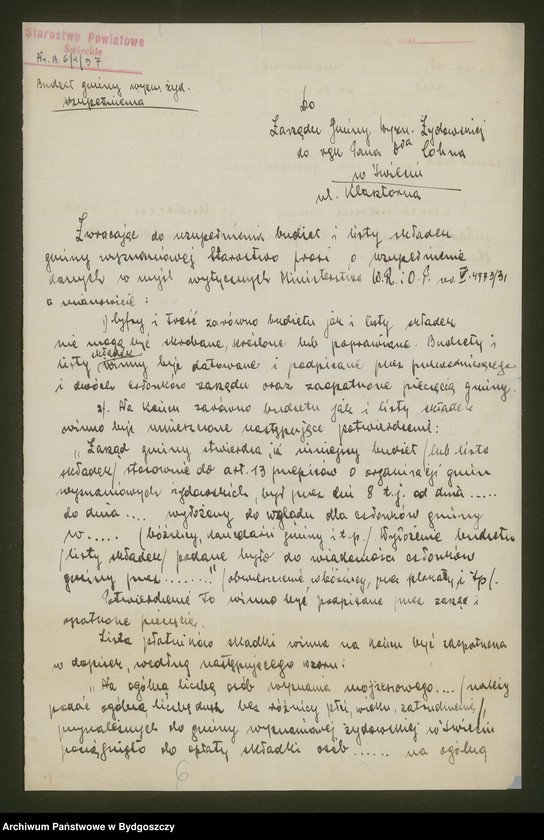 Starostwo Powiatowe
Świeckie
Nr. A. 6/1/37
Budżet gminy wyzn. żyd.
uzupełnienia
Do
Zarządu Gminy Wyzn. Żydowskiej
do rąk Pana Cohna
w Świeciu
ul. Klasztorna
Zwracając do uzupełnienia budżet i listy składek
gminy wyznaniowej Starostwo prosi o uzupełnienie
danych w myśl wytycznych Ministerstwa W.R. i O.P. nr. V-4973/31
a mianowicie:
1) cyfry i treść zarówno budżetu jak i listy składek
nie mogą być skrobane, kreślone lub poprawiane. Budżety i
listy składek winny być datowane i podpisane przez przewodniczącego
i dwóch członków zarządu oraz zaopatrzone pieczęcią gminy.
2/. Na końcu zarówno budżetu jak i listy składek
winno być umieszczone następujące potwierdzenie:
"Zarząd gminy stwierdza, iż niniejszy budżet /lub lista
składek/ stosownie do art. 13 przepisów o organizacji gmin
wyznaniowych żydowskich, był przez dni 8 t.j. od dnia .....
do dnia .... wyłożony do wglądu dla członków gminy
w ..... /bóżnicy, kancelarii gminy i t.p./ Wyłożenie budżetu
/listy składek/ podane było do wiadomości członków
gminy przez ......." /obwieszczenie w bóżnicy, przez plakaty, i t.p/.
Potwierdzenie to winno być podpisane przez zarząd i
opatrzone pieczęcią.
Lista płatników składki winna na końcu być zaopatrzona
w dopisek, według następującego wzoru:
"Na ogólną liczbę osób wyznania mojżeszowego .... /należy
podać ogólną liczbę dusz bez różnicy płci, wieku, zatrudnienia/,
przynależnych do gminy wyznaniowej żydowskiej w Świeciu
pociągnięto do opłaty składki osób ...... na ogólną
6
Archiwum Państwowe w Bydgoszczy